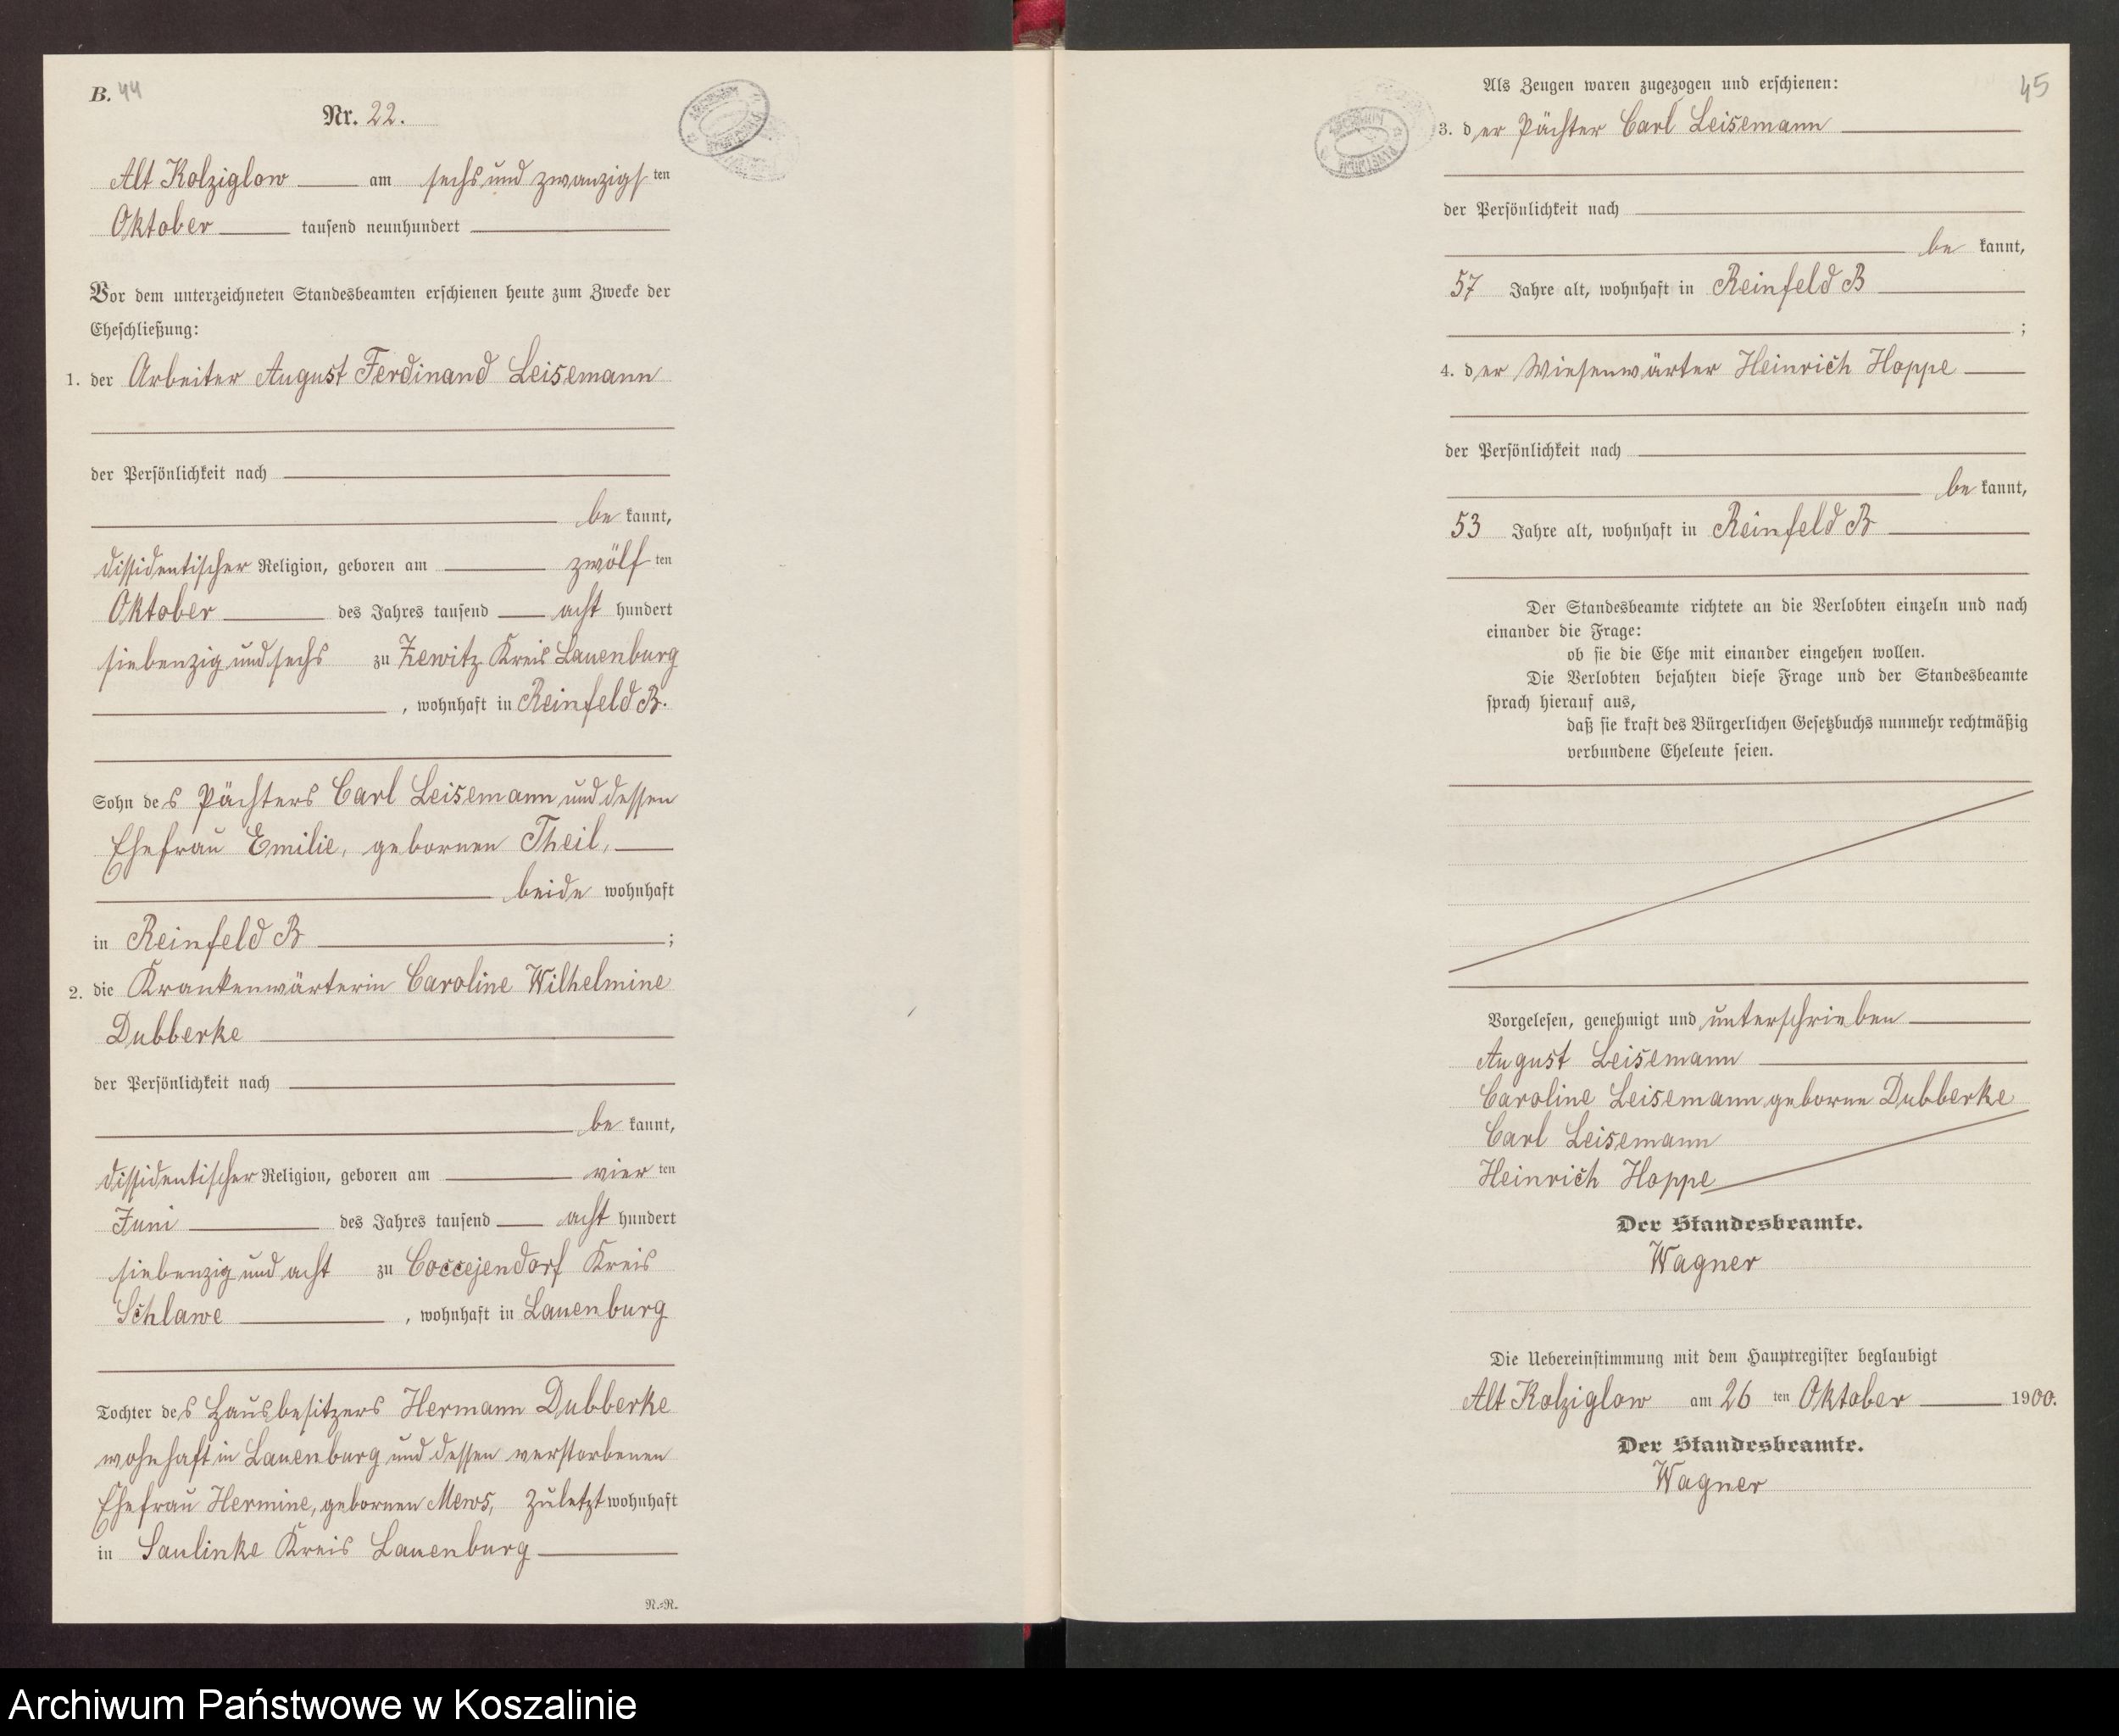 B. 44
Nr. 22.
Alt Kolziglow am sechs und zwanzigsten
Oktober tausend neunhundert
Vor dem unterzeichneten Standesbeamten erschienen heute zum Zwecke der
Eheschließung:
1. der Arbeiter August Ferdinand Leisemann
der Persönlichkeit nach
be kannt,
dissidentischer Religion, geboren am zwölf ten
Oktober des Jahres tausend acht hundert
siebenzig und sechs zu Zewitz Kreis Lauenburg
, wohnhaft in Reinfeld B.
Sohn des Pächters Carl Leisemann und dessen
Ehefrau Emilie, gebornen Theil,
beide wohnhaft
in Reinfeld B ;
2. die Krankenwärterin Caroline Wilhelmine
Dubberke
der Persönlichkeit nach
be kannt,
dissidentischer Religion, geboren am vier ten
Juni des Jahres tausend acht hundert
siebenzig und acht zu Coccejendorf Kreis
Schlawe , wohnhaft in Lauenburg
Tochter des Hausbesitzers Hermann Dubberke
wohnhaft in Lauenburg und dessen verstorbenen
Ehefrau Hermine, gebornen Mews, zuletzt wohnhaft
in Saulinke Kreis Lauenburg
N.=N.
45
Als Zeugen waren zugezogen und erschienen:
3. der Pächter Carl Leisemann
der Persönlichkeit nach
be kannt,
57 Jahre alt, wohnhaft in Reinfeld B
;
4. der Wiesenwärter Heinrich Hoppe
der Persönlichkeit nach
be kannt,
53 Jahre alt, wohnhaft in Reinfeld B
Der Standesbeamte richtete an die Verlobten einzeln und nach
einander die Frage:
ob sie die Ehe mit einander eingehen wollen.
Die Verlobten bejahten diese Frage und der Standesbeamte
sprach hierauf aus,
daß sie kraft des Bürgerlichen Gesetzbuchs nunmehr rechtmäßig
verbundene Eheleute seien.
Vorgelesen, genehmigt und unterschrieben
August Leisemann
Caroline Leisemann geborne Dubberke
Carl Leisemann
Heinrich Hoppe
Der Standesbeamte.
Wagner
Die Uebereinstimmung mit dem Hauptregister beglaubigt
Alt Kolziglow am 26 ten Oktober 1900.
Der Standesbeamte.
Wagner
Archiwum Państwowe w Koszalinie